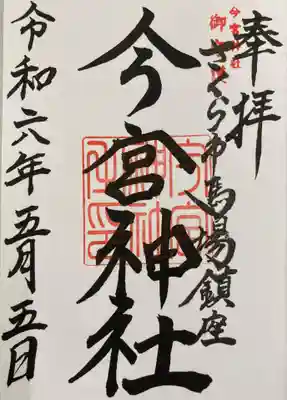 奉拝
今宮神社
さくら市馬場鎮座
今宮神社
令和六年五月五日